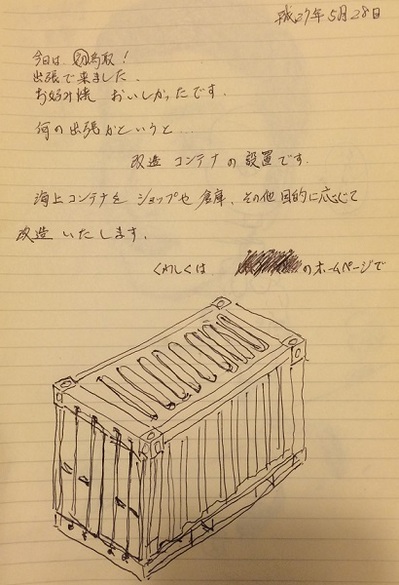 平成27年5月28日
今日は 初鳥取!
出張で来ました.
お好み焼 おいしかったです.
何の出張かというと...
改造 コンテナ の 設置です.
海上コンテナを ショップや 倉庫、その他 目的に応じて
改造 いたします.
くわしくは のホームページで